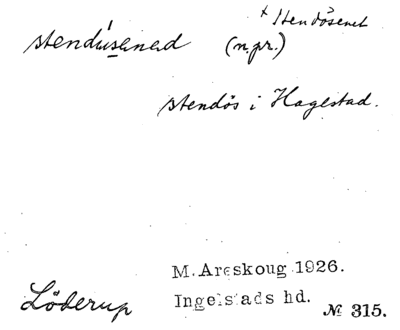 + Stendösenet
stendúsened (n.pr.)
stendös i Hagestad.
M. Areskoug 1926.
Löderup Ingelstads hd. № 315.